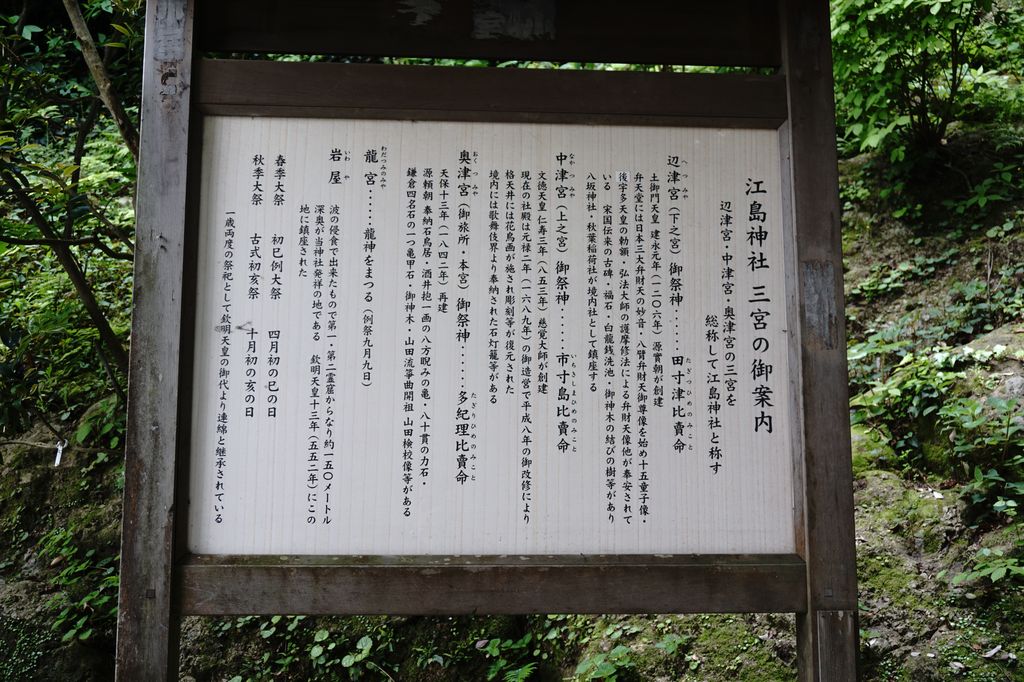 江島神社 三宮の御案内
辺津宮・中津宮・奥津宮の三宮を
総称して江島神社と称す
へつみや
辺津宮（下之宮）御祭神・・・・・田寸津比賣命
たぎつひめのみこと
土御門天皇 建永元年（一二〇六年）源實朝が創建
弁天堂には日本三大弁財天の妙音・八臂弁財天御尊像を始め十五童子像・
後宇多天皇の勅額・弘法大師の護摩修法による弁財天像他が奉安されて
いる 宋国伝来の古碑・福石・白龍銭洗池・御神木の結びの樹等があり
八坂神社・秋葉稲荷社が境内社として鎮座する
なかつみや
中津宮（上之宮）御祭神・・・・・市寸島比賣命
いちきしまひめのみこと
文徳天皇仁寿三年（八五三年）慈覚大師が創建
現在の社殿は元禄二年（一六八九年）の御造営で平成八年の御改修により
格天井には花鳥画が施され彫刻等が復元された
境内には歌舞伎界より奉納された石灯籠等がある
おくつみや
奥津宮（御旅所・本宮）御祭神・・・・・・多紀理比賣命
たぎりひめのみこと
天保十三年（一八四二年）再建
源頼朝 奉納石鳥居・酒井抱一画の八方睨みの亀・八十貫の力石・
鎌倉四名石の一つ亀甲石・御神木・山田流箏曲開祖 山田検校像等がある
わだつみのみや
龍宮・・・・・・龍神をまつる（例祭九月九日）
いわや
岩屋
波の侵食で出来たもので第一・第二霊窟からなり約一五〇メートル
深奥が当神社発祥の地である 欽明天皇十三年（五五二年）にこの
地に鎮座された
春季大祭 初巳例大祭 四月初の巳の日
秋季大祭 古式初亥祭 十月初の亥の日
一歳両度の祭祀として欽明天皇の御代より連綿と継承されている